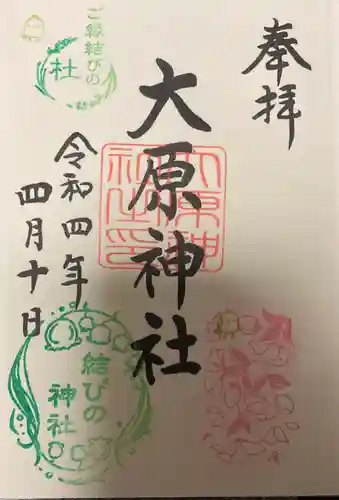 奉拝
大原神社
令和四年
四月十日
ご縁結びの
社
結びの
神社